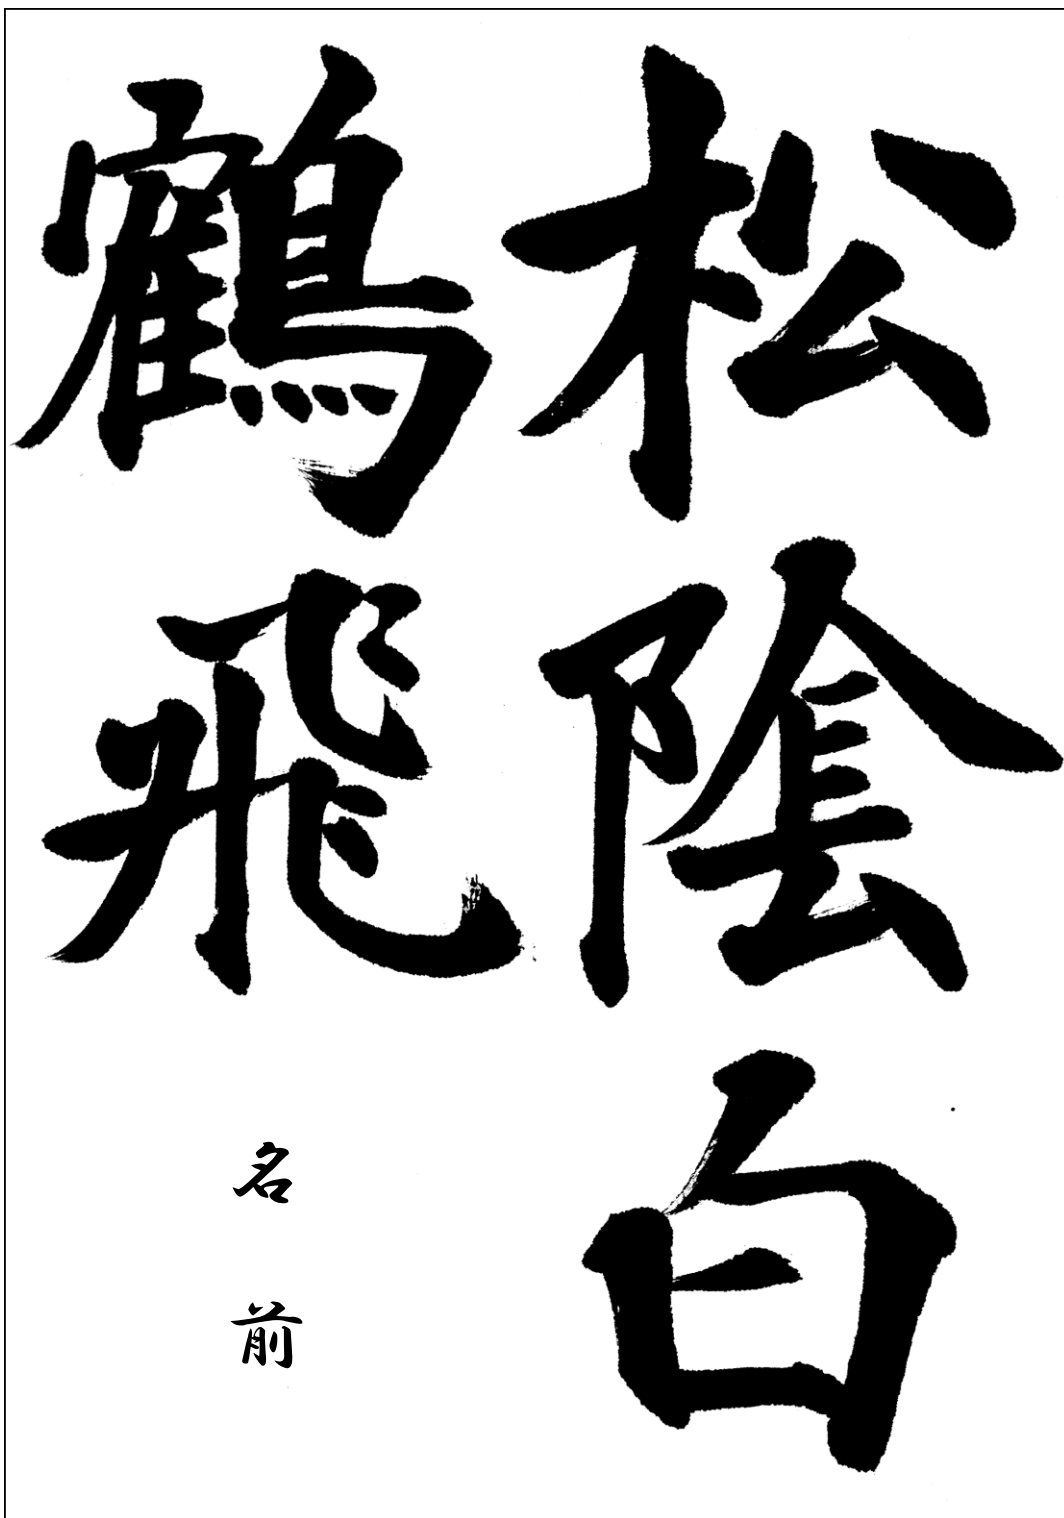 松陰白
鶴飛
名前